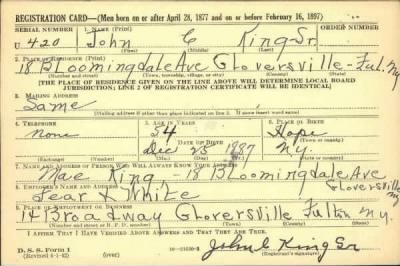 REGISTRATION CARD—(Men born on or after April 28, 1877 and on or before February 16, 1897)
SERIAL NUMBER 1. NAME (Print)
U 420 John C King Sr.
(First) (Middle) (Last)
2. PLACE OF RESIDENCE (Print)
18 Bloomingdale Ave Gloversville - Ful. Ny
(Number and street) (Town, township, village, or city) (County) (State)
[THE PLACE OF RESIDENCE GIVEN ON THE LINE ABOVE WILL DETERMINE LOCAL BOARD
JURISDICTION; LINE 2 OF REGISTRATION CERTIFICATE WILL BE IDENTICAL]
3. MAILING ADDRESS
Same
(Mailing address if other than place indicated on line 2. If same insert word same)
4. TELEPHONE 5. AGE IN YEARS 6. PLACE OF BIRTH
none 54 Hope
DATE OF BIRTH (Town or county)
Dec 25 1887 Ny.
(Exchange) (Number) (Mo.) (Day) (Yr.) (State or country)
7. NAME AND ADDRESS OF PERSON WHO WILL ALWAYS KNOW YOUR ADDRESS
Mae King - 18 Bloomingdale Ave
8. EMPLOYER'S NAME AND ADDRESS Gloversville Ny
Lear & White
9. PLACE OF EMPLOYMENT OR BUSINESS
14 Broadway Gloversville Fulton Ny.
(Number and street or R. F. D. number) (Town) (County) (State)
I AFFIRM THAT I HAVE VERIFIED ABOVE ANSWERS AND THAT THEY ARE TRUE.
D. S. S. Form 1
(Revised 4-1-42) (over) John C King Sr
(Registrant's signature)